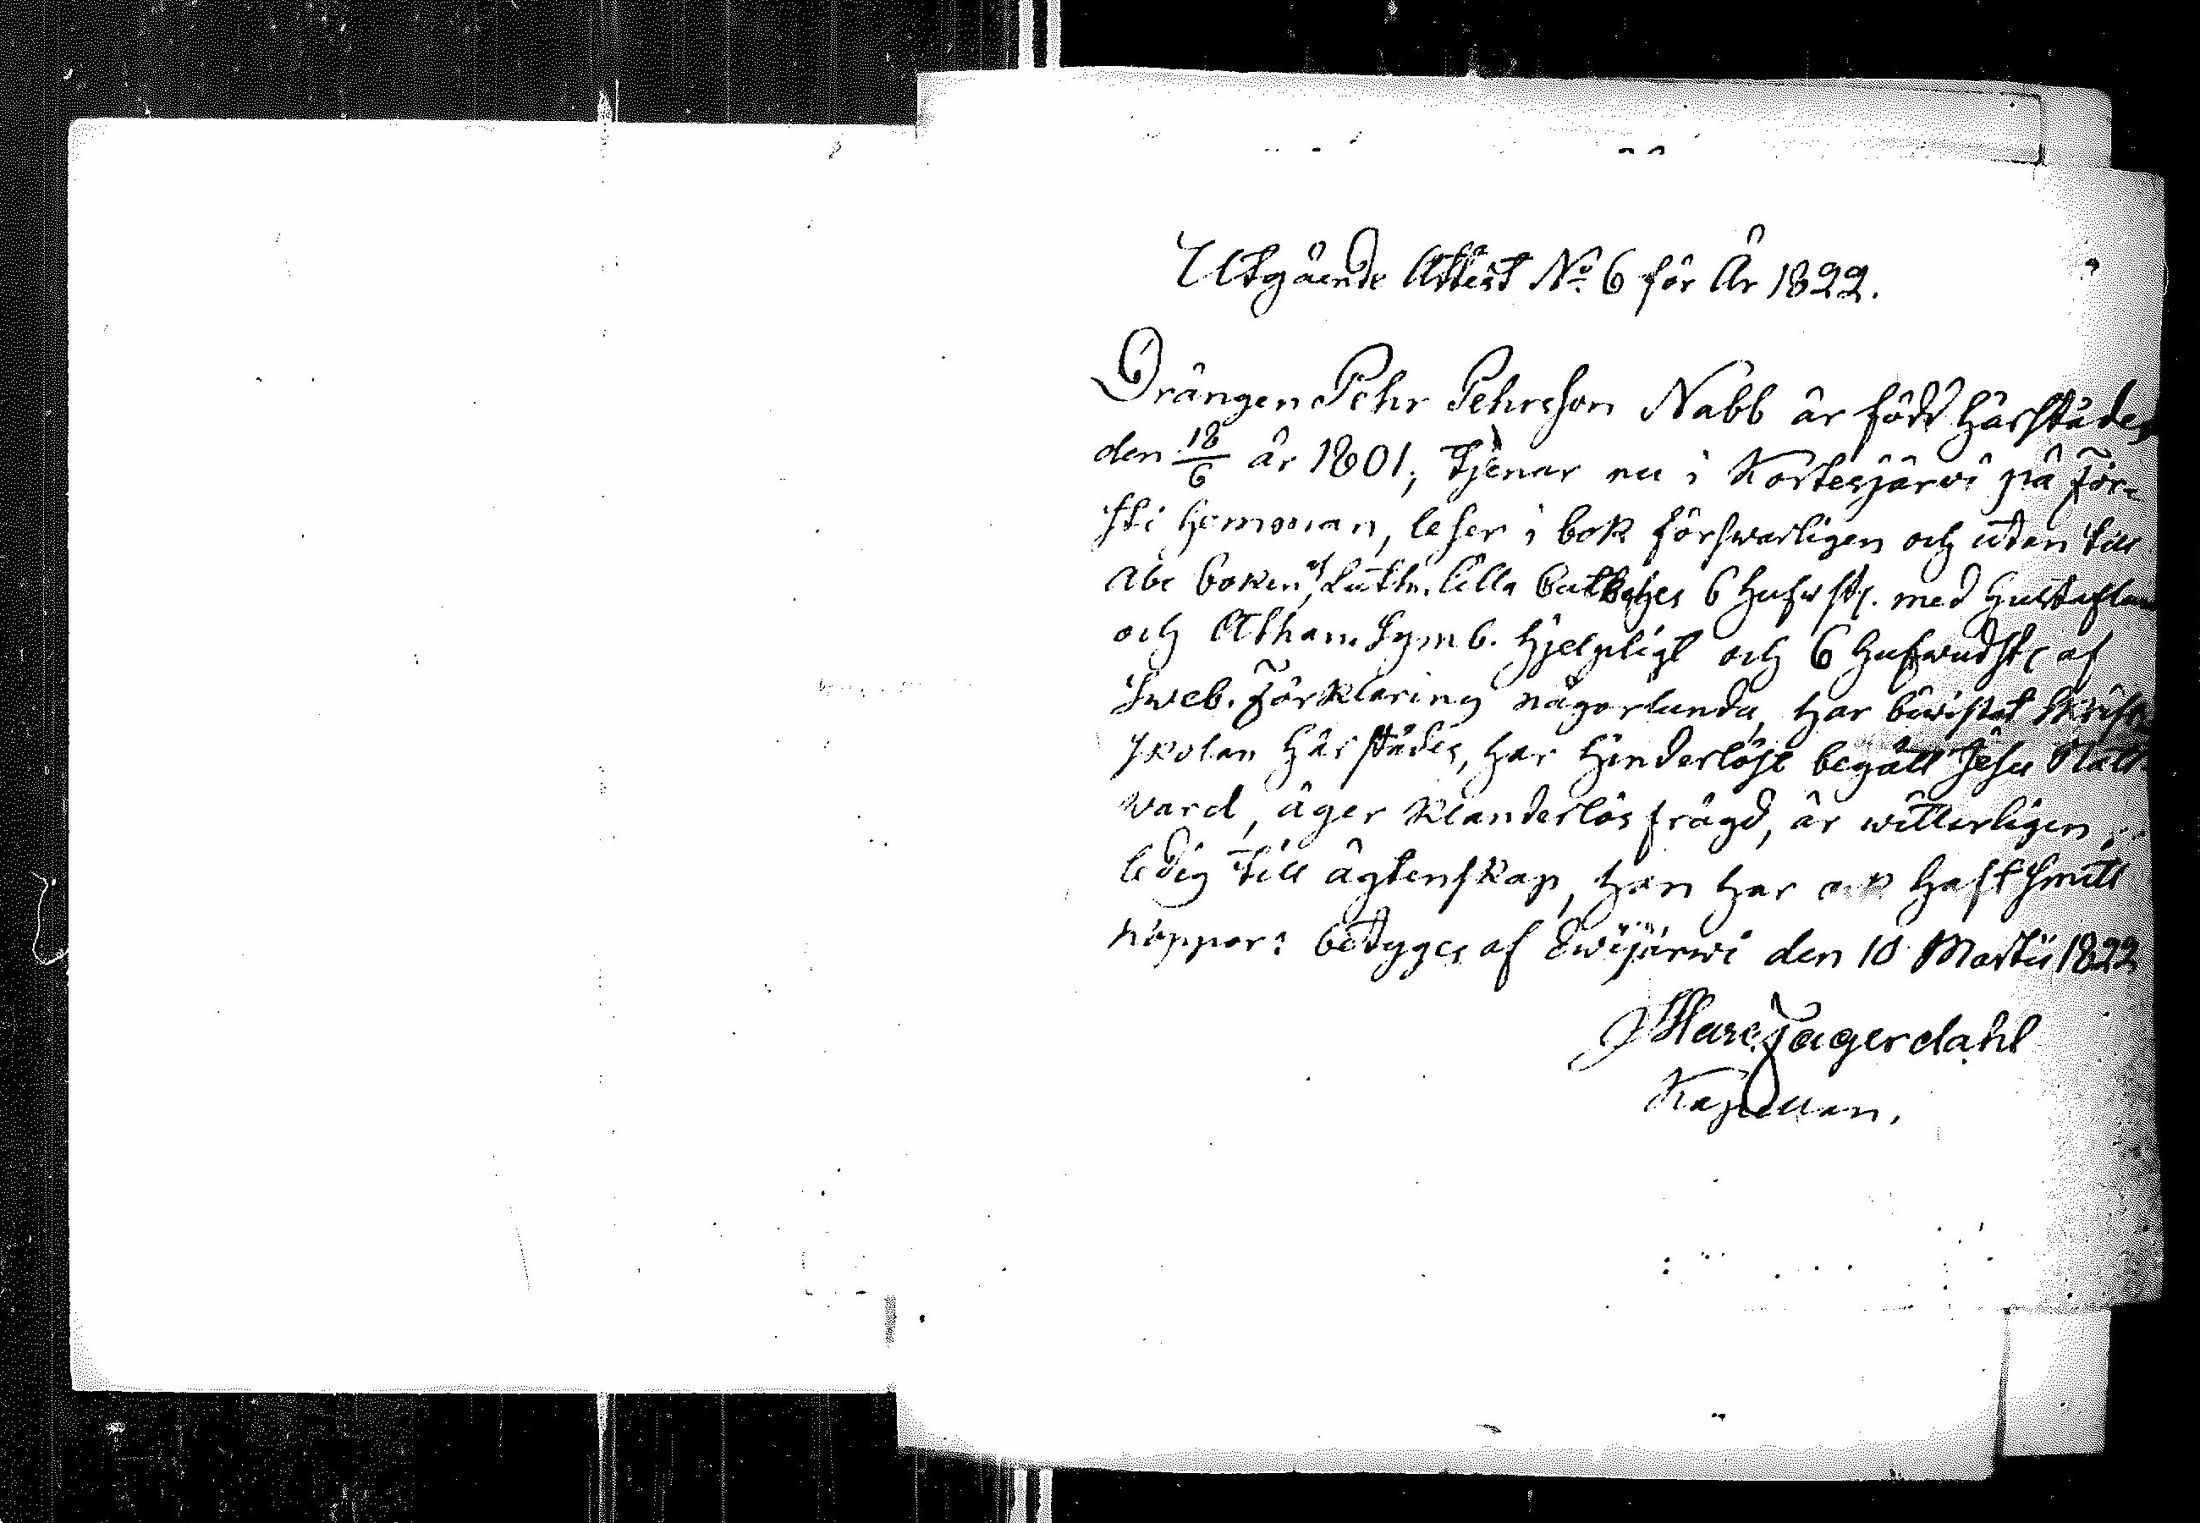 Utgående Attest No. 6 för År 1822.
Drängen Pehr Pehrsson Nabb är född härstädes
den 18/6 år 1801, tjenar nu i Kortesjärwi på För-
sti hemman, leser i bok förswarligen och utan till
Abc boken, Luth. lilla Catkeses 6 hufwst. med hustaflan
och Athan. Symb. hjelpligt och 6 hufwudst. af
Sweb. Förklaring någorlunda, har biwistat Skrift
skolan härstädes, har hinderlöst begått Jesu Natt-
ward, äger klanderlös frägd, är witterligen
ledig till ägtenskap, han har ock haft smitt
koppor: betyges af Ewijärwi den 10 Martii 1822
Fagerdahl
Kapellan.